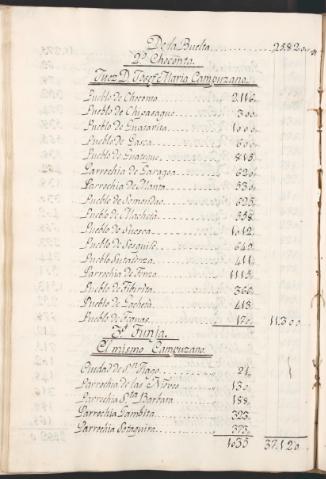 De la Buelta 25820
2º Choconta.
Juez D. Josef Maria Campuzano.
Pueblo de Choconta 2116
Pueblo de Chipasaque 300
Pueblo de Guatavita 1000
Pueblo de Gasca 600
Pueblo de Guateque 815
Parrochia de Zaragoza 620
Parrochia de Manta 530
Pueblo de Somondoc 525
Pueblo de Macheta 558
Pueblo de Suesca 1012
Pueblo de Sesquilé 640
Pueblo Sutatenza 411
Parrochia de Tenza 1115
Pueblo de Tibirita 366
Pueblo de 413
Pueblo de 170 11300
3º Tunja.
El mismo Campuzano.
Ciudad de Sn Tiago 21
Parrochia de las Nieves 130
Parrochia Sta Barbara 188
Parrochia Gambita 323
Parrochia Petaquira 373
1035 37120